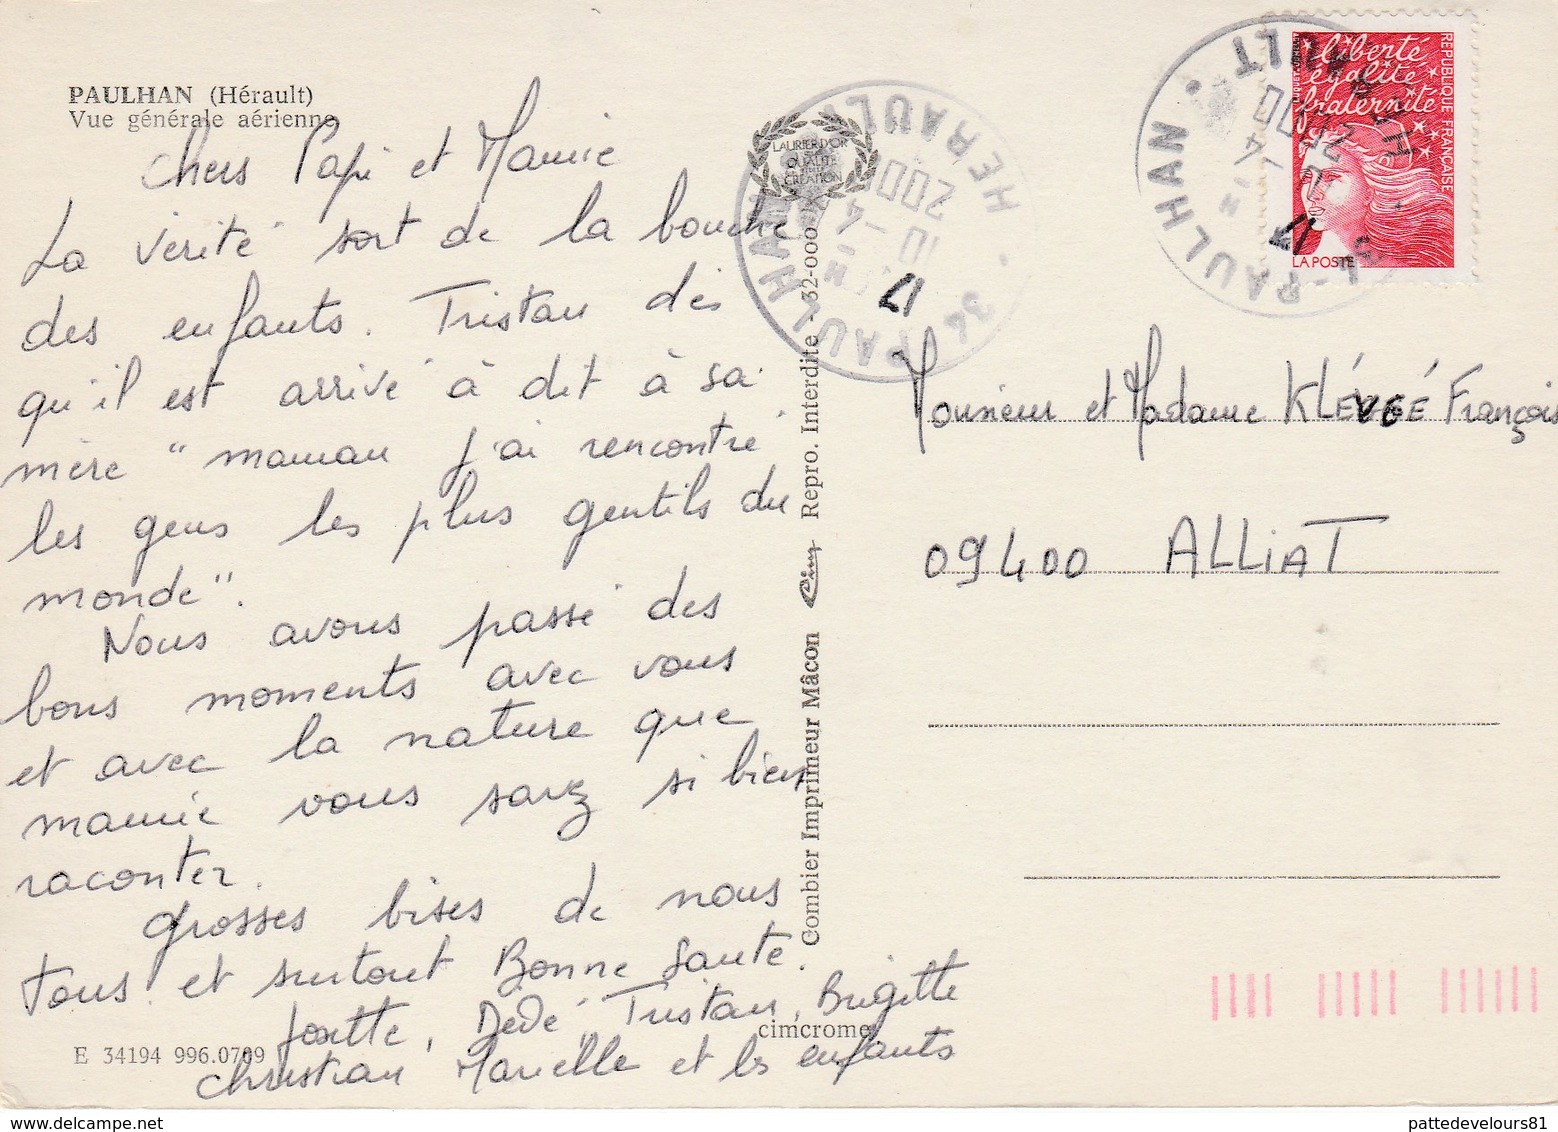 PAULHAN (Hérault)
Vue générale aérienne
Chers Papi et Mamie
La vérité sort de la bouche
des enfants. Tristan dès
qu'il est arrivé à dit à sa
mère "maman j'ai rencontré
les gens les plus gentils du
monde".
Nous avons passé des
bons moments avec vous
et avec la nature que
mamie vous savez si bien
raconter.
Grosses bises de nous
tous et surtout Bonne Santé.
Josette, Dédé, Tristan, Brigitte
Christian Marielle et les enfants
E 34194 996.0709
cimcrome
Combier Imprimeur Mâcon Cim Repro. Interdite - 32-000
LAURIER D'OR
QUALITÉ
CRÉATION
34 PAULHAN
HERAULT
17
10 -4
200
liberté
égalité
fraternité
REPUBLIQUE FRANÇAISE
LA POSTE
34-PAULHAN
HERAULT
17
-4
Monsieur et Madame François
09400 ALLIAT
pattedevelours81